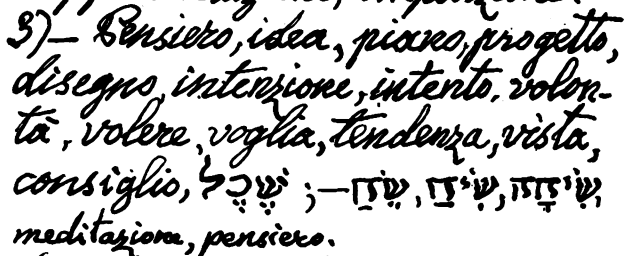 3)— Pensiero, idea, piano, progetto,
disegno, intenzione, intento, volon-
tà, volere, voglia, tendenza, vista,
consiglio, שֶׂכֶל ;— שֵׂחַ, שִׂיחַ, שִׂיחָה,
meditazione, pensiero.